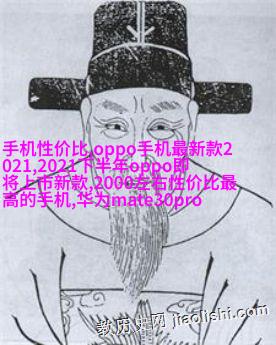 手机性价比,oppo手机最新款2
021,2021下半年oppo即
将上市新款,2000左右性价比最
高的手机,华为mate30pro
教历史网 jiaolishi.com